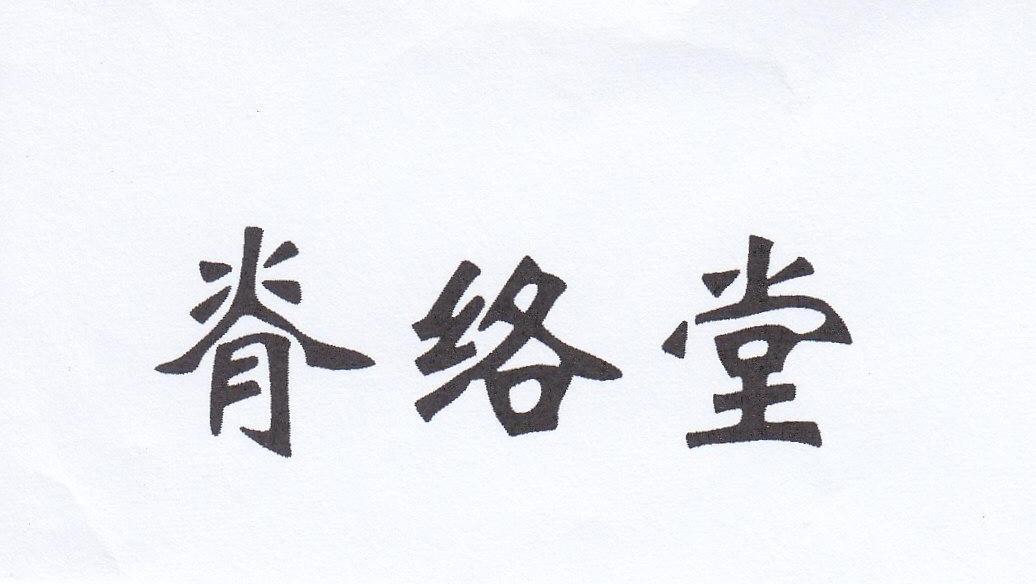 脊络堂